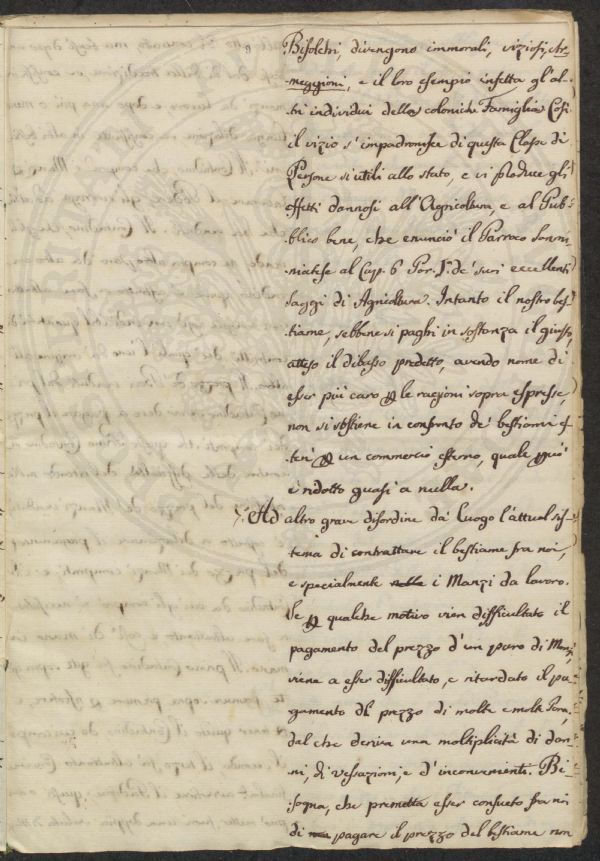 Bifolchi, divengono immorali, viziosi,
meggioni, e il loro esempio infetta gl'al-
tri individui delle coloniche Famiglie. Così
il vizio s'impadronisce di questa Classe di
Persone si utili allo stato, e vi produce gli
effetti dannosi all'Agricoltura, e al Pub-
blico bene, che enunciò il Parroco Sanmi-
niatese al Cap. 6 Par. 1ª de' suoi eccellenti
saggi di Agricoltura. Intanto il nostro bes-
tiame, sebbene si paghi in sostanza il giusto,
atteso il dibasso predetto, avendo nome di
esser più caro p le ragioni sopra espresse,
non si sostiene in confronto de' bestiami es-
teri p un commercio esterno, quale perciò
è ridotto quasi a nulla.
Ad altro grave disordine dà luogo l'attual sis-
tema di contrattare il bestiame fra noi,
e specialmente i Manzi da lavoro.
Se p qualche motivo vien difficultato il
pagamento del prezzo d'un paro di Manzi,
viene a esser difficultato, e ritardato il pa-
gamento del prezzo di molte e molte Para,
dal che deriva una moltiplicità di dan-
ni, di vessazioni, e d'inconvenienti. Bi-
sogna, che premetta esser consueto fra noi
di pagare il prezzo del bestiame non